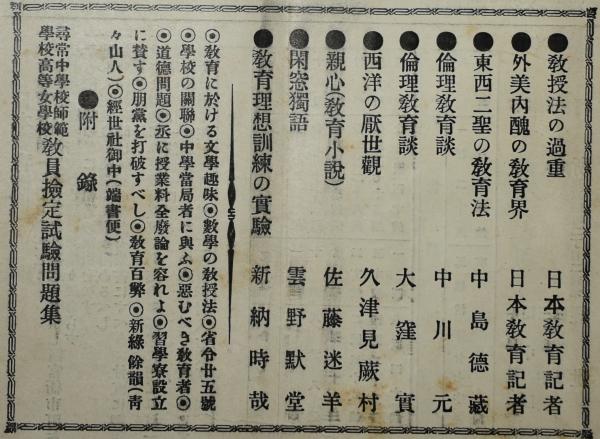 ●教授法の過重 日本教育記者
●外美內醜の教育界 日本教育記者
●東西二聖の教育法 中島德藏
●倫理教育談 中川元
●倫理教育談 大窪實
●西洋の厭世觀 久津見蕨村
●親心(教育小說) 佐藤迷羊
●閑窓獨語 雲野默堂
●教育理想訓練の實驗 新納時哉
◉教育に於ける文學趣味◉數學の教授法◉省令廿五號
◉學校の關聯◉中學當局者に與ふ◉惡むべき教育者◉
◉道德問題◉丞に授業料全廢論を容れよ◉習學寮設立
に賛す◉朋黨を打破すべし◉教育百弊◉新綠餘韻(靑
々山人)◉經世社御中(端書便)
●附錄
尋常中學校師範學校高等女學校教員檢定試驗問題集